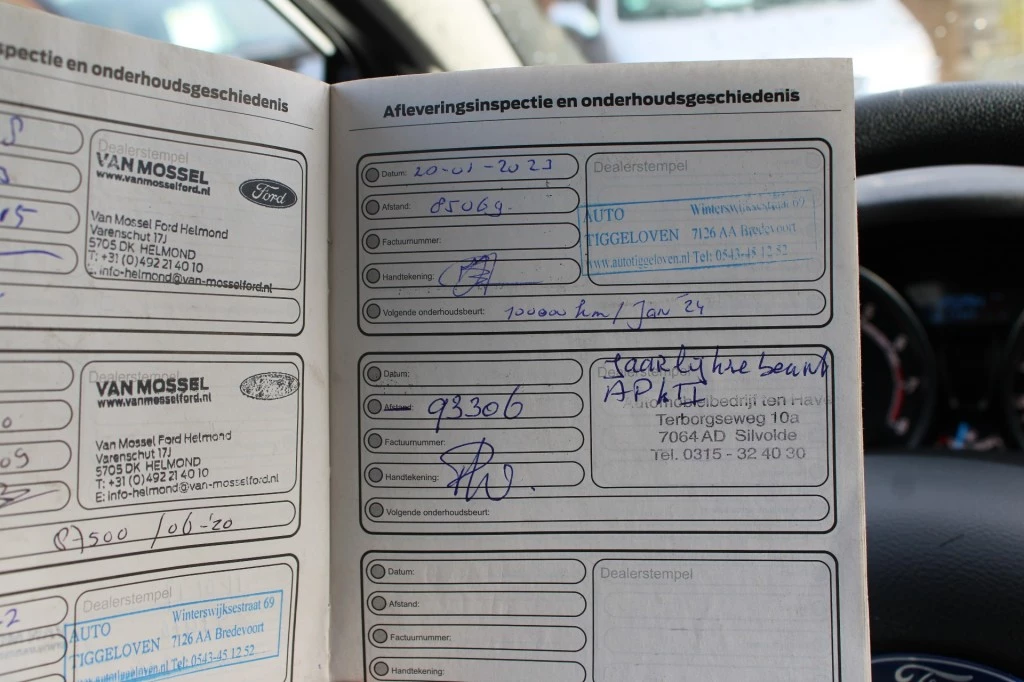 spectie en onderhoudsgeschiedenis
Dealerstempel
VAN MOSSEL
www.vanmosselford.nl
Ford
Van Mossel Ford Helmond
Varenschut 17J
5705 DK HELMOND
T: +31 (0)492 21 40 10
E: info-helmond@van-mosselford.nl
15
Dealerstempel
VAN MOSSEL
www.vanmosselford.nl
Van Mossel Ford Helmond
Varenschut 17J
5705 DK HELMOND
T: +31 (0)492 21 40 10
E: info-helmond@van-mosselford.nl
09
87500 /06-'20
Dealerstempel
AUTO Winterswijksestraat 69
TIGGELOVEN 7126 AA Bredevoort
www.autotiggeloven.nl Tel: 0543-45 12 52
Afleveringsinspectie en onderhoudsgeschiedenis
Datum: 20-01-2023
Afstand: 85069.
Factuurnummer:
Handtekening:
Volgende onderhoudsbeurt: 10000 km / Jan '24
Dealerstempel
AUTO Winterswijksestraat 69
TIGGELOVEN 7126 AA Bredevoort
www.autotiggeloven.nl Tel: 0543-45 12 52
Datum:
Afstand: 93306
Factuurnummer:
Handtekening:
Volgende onderhoudsbeurt:
Dealerstempel
Jaarlijkse beurt
APK II
Automobielbedrijf ten Have
Terborgseweg 10a
7064 AD Silvolde
Tel. 0315 - 32 40 30
Datum:
Afstand:
Factuurnummer:
Handtekening:
Dealerstempel
Ford